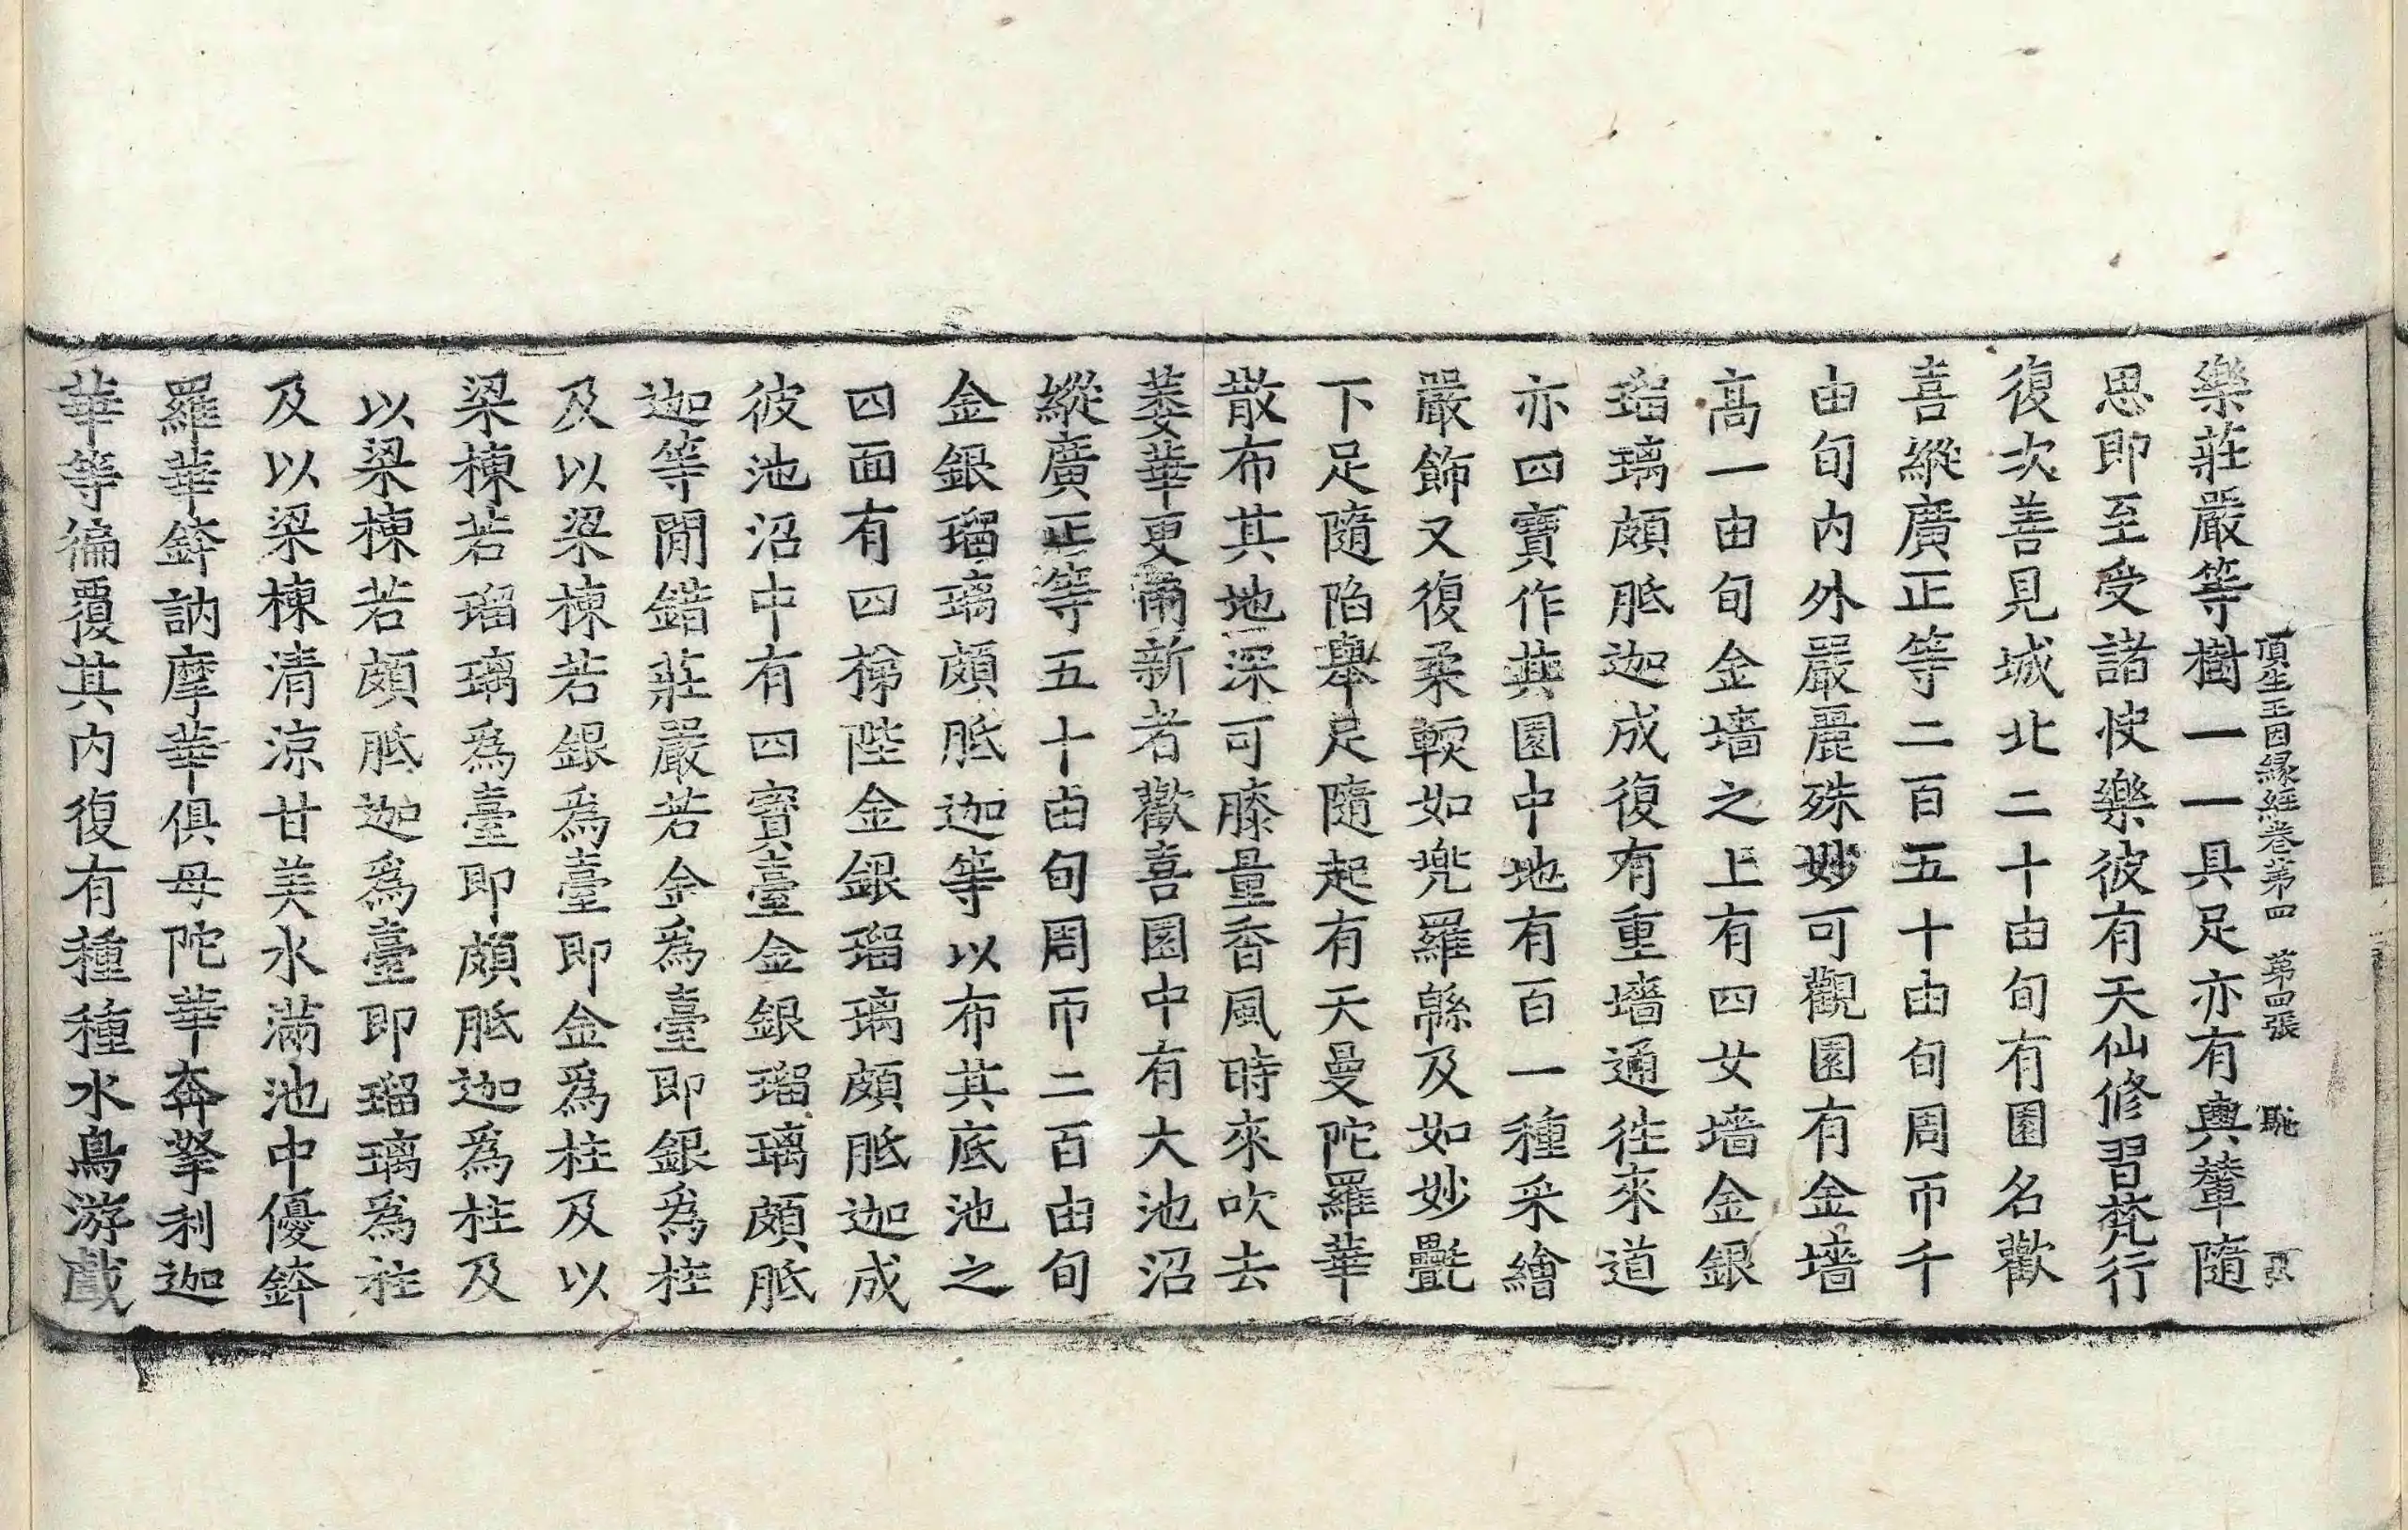 頂生王因縁經卷第四　第四張　馳
樂莊嚴等樹一一具足亦有輿輦隨
思即至受諸快樂彼有天仙修習梵行
復次善見城北二十由旬有園名歡
喜縱廣正等二百五十由旬周帀千
由旬内外嚴麗殊妙可觀園有金墻
髙一由旬金墻之上有四女墻金銀
瑠璃頗胝迦成復有重墻通徃來道
亦四寳作其園中地有百一種采繪
嚴飾又復柔軟如兠羅緜及如妙㲲
下足隨陷舉足隨起有天曼陀羅華
散布其地深可膝量香風時來吹去
萎華更雨新者歡喜園中有大池沼
縱廣正等五十由旬周帀二百由旬
金銀瑠璃頗胝迦等以布其底池之
四面有四梯陛金銀瑠璃頗胝迦成
彼池沼中有四寳臺金銀瑠璃頗胝
迦等間錯莊嚴若金爲臺即銀爲柱
及以梁棟若銀爲臺即金爲柱及以
梁棟若瑠璃爲臺即頗胝迦爲柱及
以梁棟若頗胝迦爲臺即瑠璃爲柱
及以梁棟清涼甘美水滿池中優鉢
羅華鉢訥摩華俱母陀華奔拏利迦
華等徧覆其内復有種種水鳥游戲